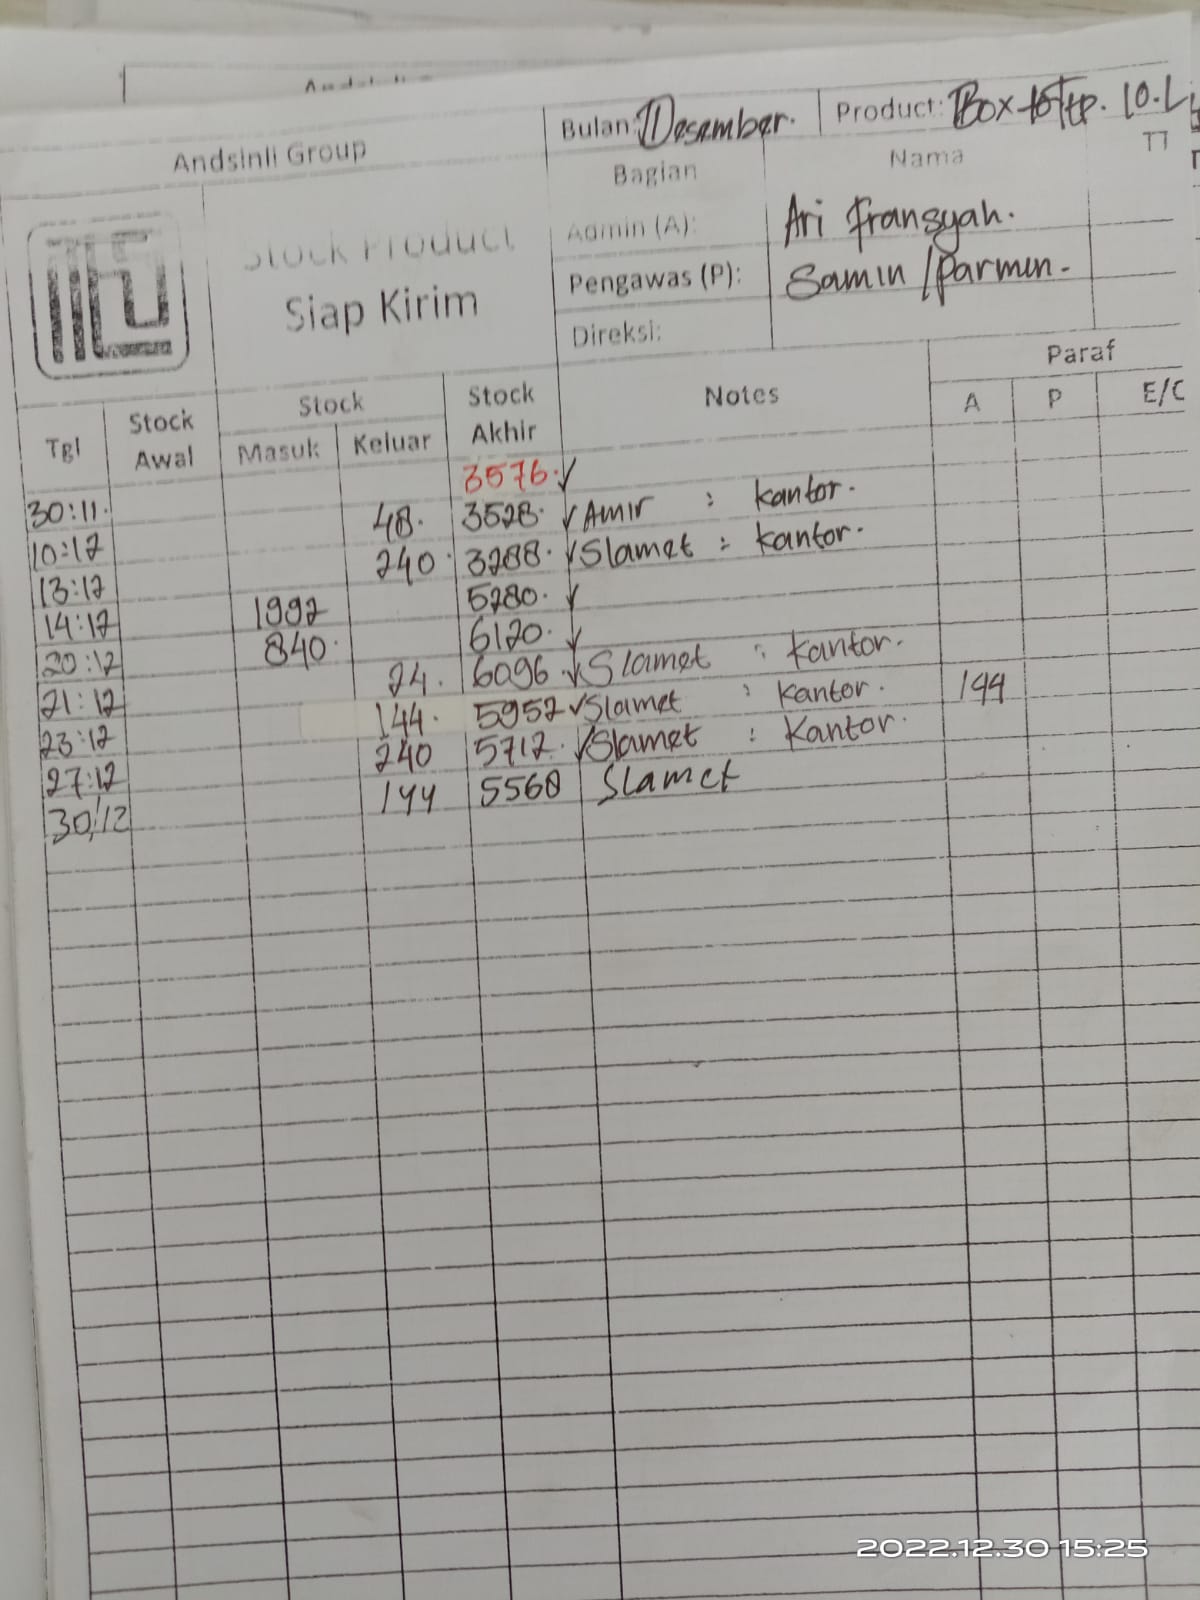 Bulan: Desember. Product: Box 10.L
Andsinli Group
Bagian Nama TT
Stock Product
Siap Kirim
Admin (A): Ari Fransyah.
Pengawas (P): Samin / Parmin.
Direksi:
Tgl Stock Awal Stock Stock Akhir Notes Paraf
Masuk Keluar A P E/C
30:11. 3576.
10:12 48. 3528. Amir : kantor.
13:12 240. 3288. Slamet : kantor.
14:12 1992 5280.
20:12 840. 6120.
21:12 24. 6096. Slamet : kantor.
23:12 144. 5952 Slamet : kantor. 144
27:12 240 5712. Slamet : Kantor.
30/12 144 5568 Slamet
2022.12.30 15:25